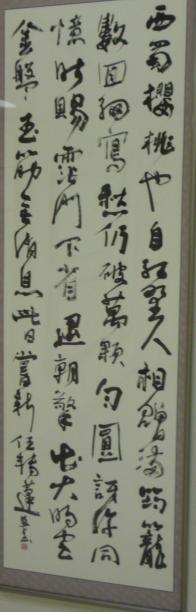 西蜀櫻桃也自紅埜人相贈滿筠籠
數回細寫愁仍破萬顆勻圓訝許同
憶昨賜霑門下省退朝擎出大明宮
金盤玉筯無消息此日嘗新任轉蓬